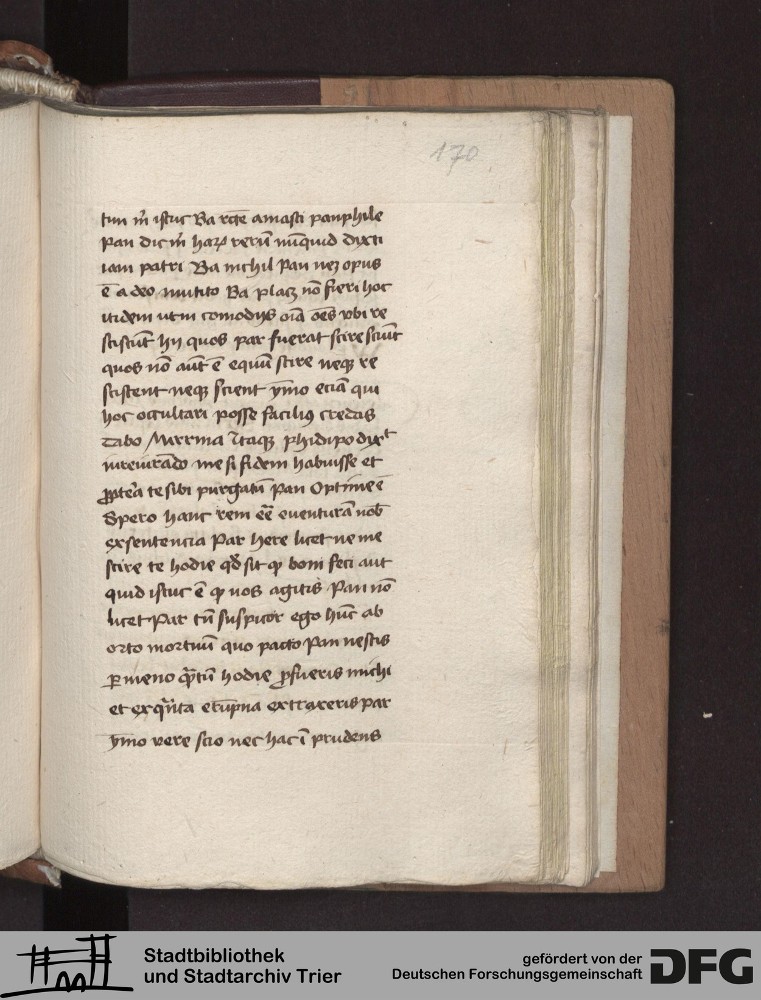 170
tim m̄ istuc Ba recte amasti panphile
Pan dic m̄ harꝝ rerū nūquid dixti
iam patri Ba nichil Pan neqꝫ opus
ē adeo mutito Ba placꝫ nō fieri hoc
itidem utm̄ comodijs oīa oēs vbi re
sciscūt hij quos par fuerat scire sciūt
quos nō aūt ē equū scire neqꝫ re
scissent neqꝫ scient ymo eciā qui
hoc occultari posse facilius credas
dabo Mirrina itaqꝫ phidipo dixt
iureiurādo me si fidem habuisse et
ꝓptea te sibi purgatū Pan Optime ē
Spero hanc rem eē euenturā nob̄
ex sentencia Par here licet ne me
scire te hodie qd̄ sit qꝫ boni feci aut
quid istuc ē qꝫ vos agitis Pan nō
licet Par tn̄ suspicor ego hūc ab
orto mortuū quo pacto Pan nescis
ꝑmeno qūtū hodie ꝓfueris michi
et ex qūta erūpna extraxeris Par
ymo vere scio nec hac īprudens
Stadtbibliothek
und Stadtarchiv Trier
gefördert von der
Deutschen Forschungsgemeinschaft
DFG